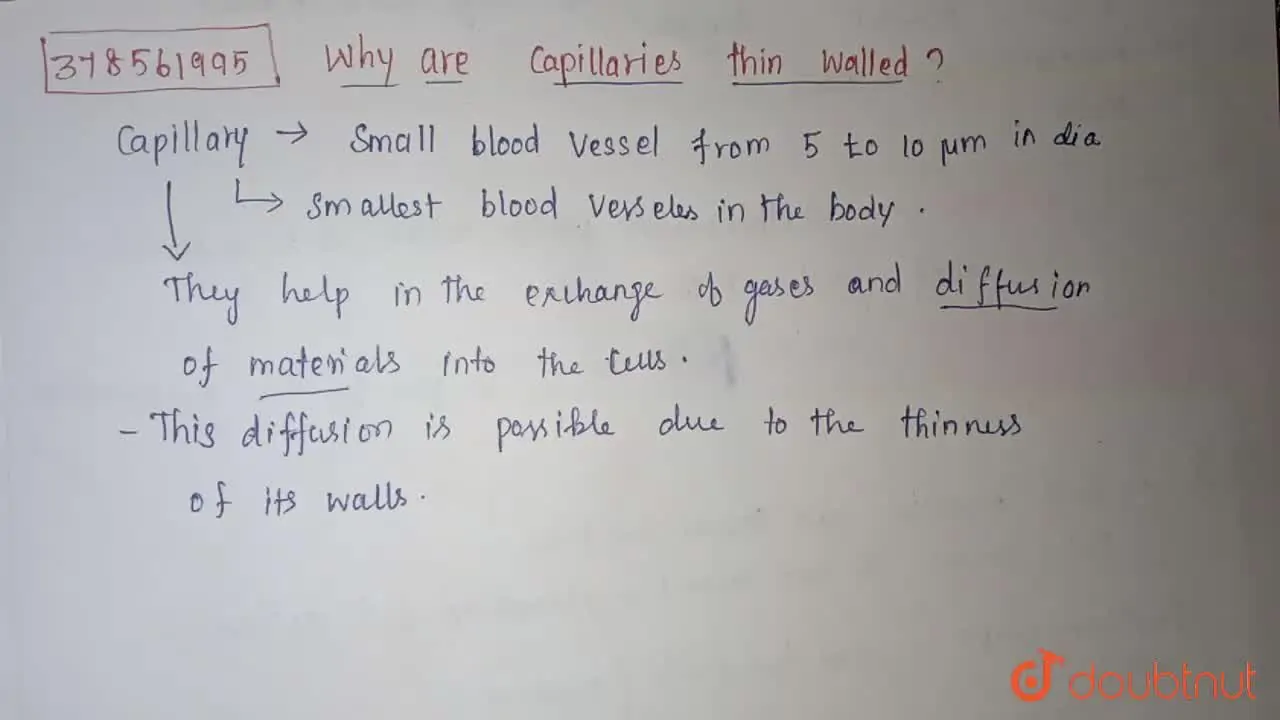 378561995 Why are Capillaries thin walled?
Capillary → Small blood vessel from 5 to 10 µm in dia
↳ Smallest blood verseles in the body.
They help in the exchange of gases and diffusion
of materials into the cells.
- This diffusion is possible due to the thinness
of its walls.
doubtnut